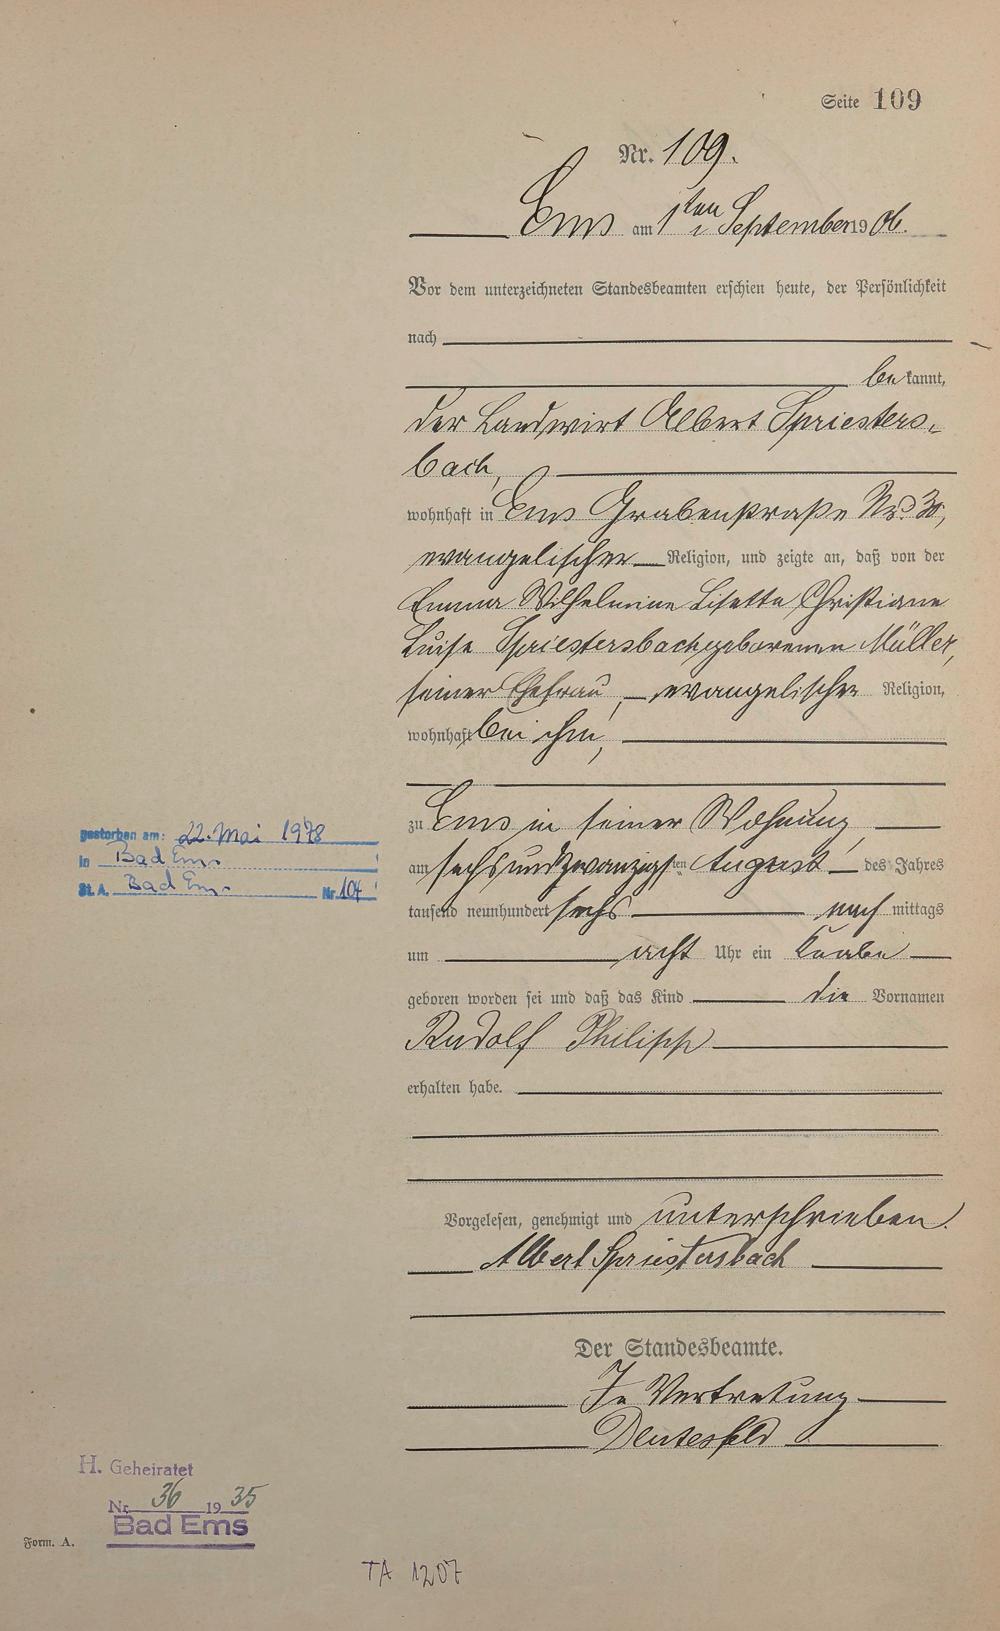 Seite 109
Nr. 109.
Ems am 1ten September 1906.
Vor dem unterzeichneten Standesbeamten erschien heute, der Persönlichkeit
nach
bekannt,
der Landwirt Albert Spriesters-
bach,
wohnhaft in Ems Grabenstraße No. 30,
evangelischer Religion, und zeigte an, daß von der
Emma Wilhelmine Lisetta Christiane
Luise Spriestersbach geborenen Müller,
seiner Ehefrau, evangelischer Religion,
wohnhaft bei ihm,
zu Ems in seiner Wohnung,
am sechsundzwanzigsten August des Jahres
tausend neunhundert sechs nach mittags
um acht Uhr ein Knabe
geboren worden sei und daß das Kind die Vornamen
Rudolf Philipp
erhalten habe.
Vorgelesen, genehmigt und unterschrieben.
Albert Spriestersbach
Der Standesbeamte.
In Vertretung
gestorben am: 22. Mai 1978
in Bad Ems
St. A. Bad Ems Nr. 104
H. Geheiratet
Nr. 36 1935
Bad Ems
Form. A.
TA 1207